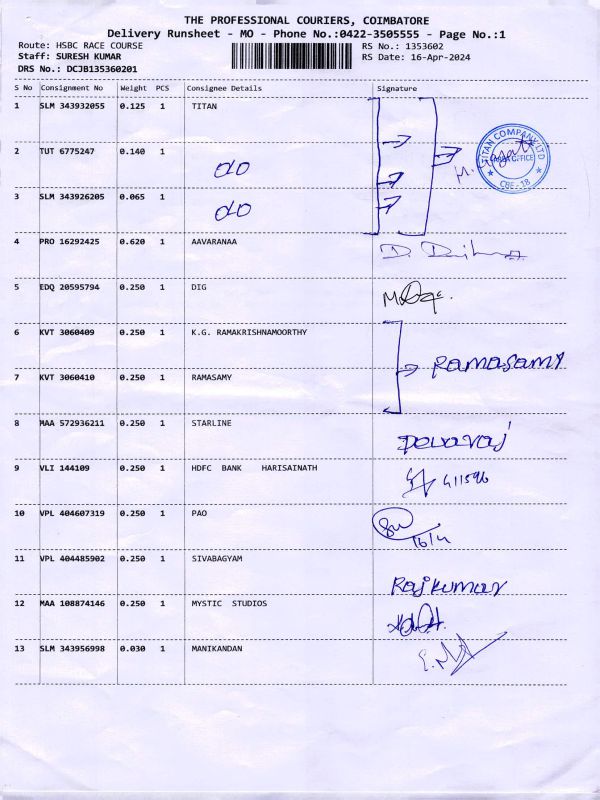 THE PROFESSIONAL COURIERS, COIMBATORE
Delivery Runsheet - MO - Phone No.:0422-3505555 - Page No.:1
Route: HSBC RACE COURSE RS No.: 1353602
Staff: SURESH KUMAR RS Date: 16-Apr-2024
DRS No.: DCJB135360201
S No Consignment No Weight PCS Consignee Details Signature
1 SLM 343932055 0.125 1 TITAN
TITAN COMPANY LTD
CBE-18
2 TUT 6775247 0.140 1
do
3 SLM 343926205 0.065 1
do
4 PRO 16292425 0.620 1 AAVARANAA
5 EDQ 20595794 0.250 1 DIG
6 KVT 3060409 0.250 1 K.G. RAMAKRISHNAMOORTHY
Ramasamy
7 KVT 3060410 0.250 1 RAMASAMY
8 MAA 572936211 0.250 1 STARLINE
Devaraj
9 VLI 144109 0.250 1 HDFC BANK HARISAINATH
411596
10 VPL 404607319 0.250 1 PAO
16/4
11 VPL 404485902 0.250 1 SIVABAGYAM
Rajkumar
12 MAA 108874146 0.250 1 MYSTIC STUDIOS
13 SLM 343956998 0.030 1 MANIKANDAN